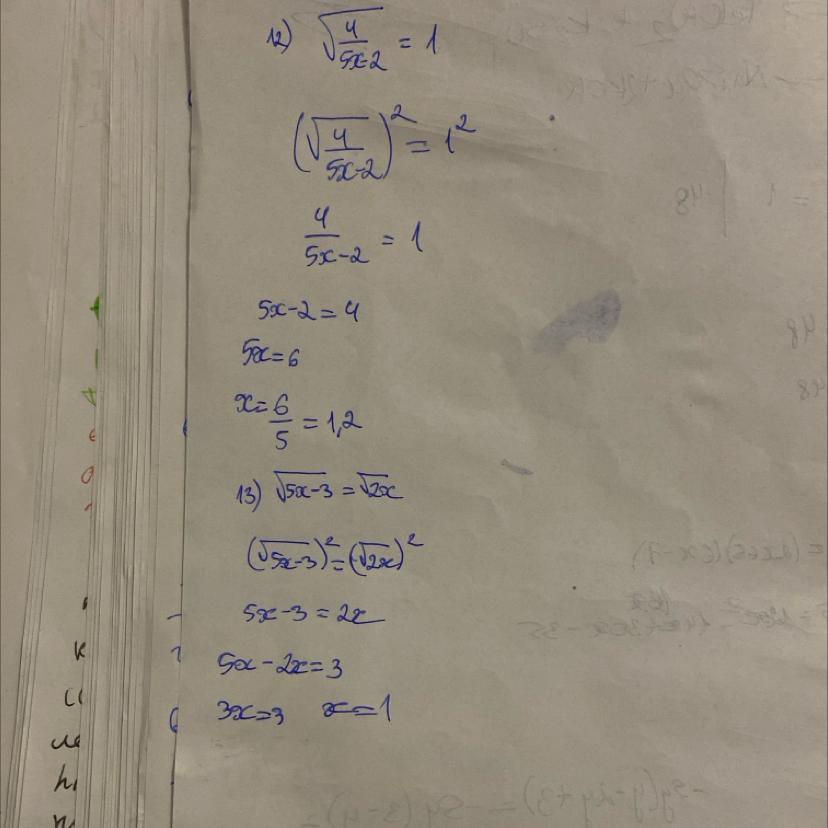 12) √(4/(5x-2)) = 1
(√(4/(5x-2)))² = 1²
4/(5x-2) = 1
5x-2=4
5x=6
x=6/5=1,2
13) √(5x-3) = √(2x)
(√(5x-3))²=(√(2x))²
5x-3=2x
5x-2x=3
3x=3 x=1